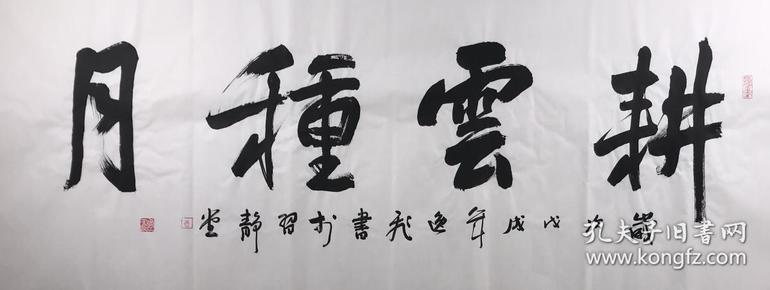 耕雲種月
戊戌年逸飛書於習靜堂
孔夫子旧书网
www.kongfz.com